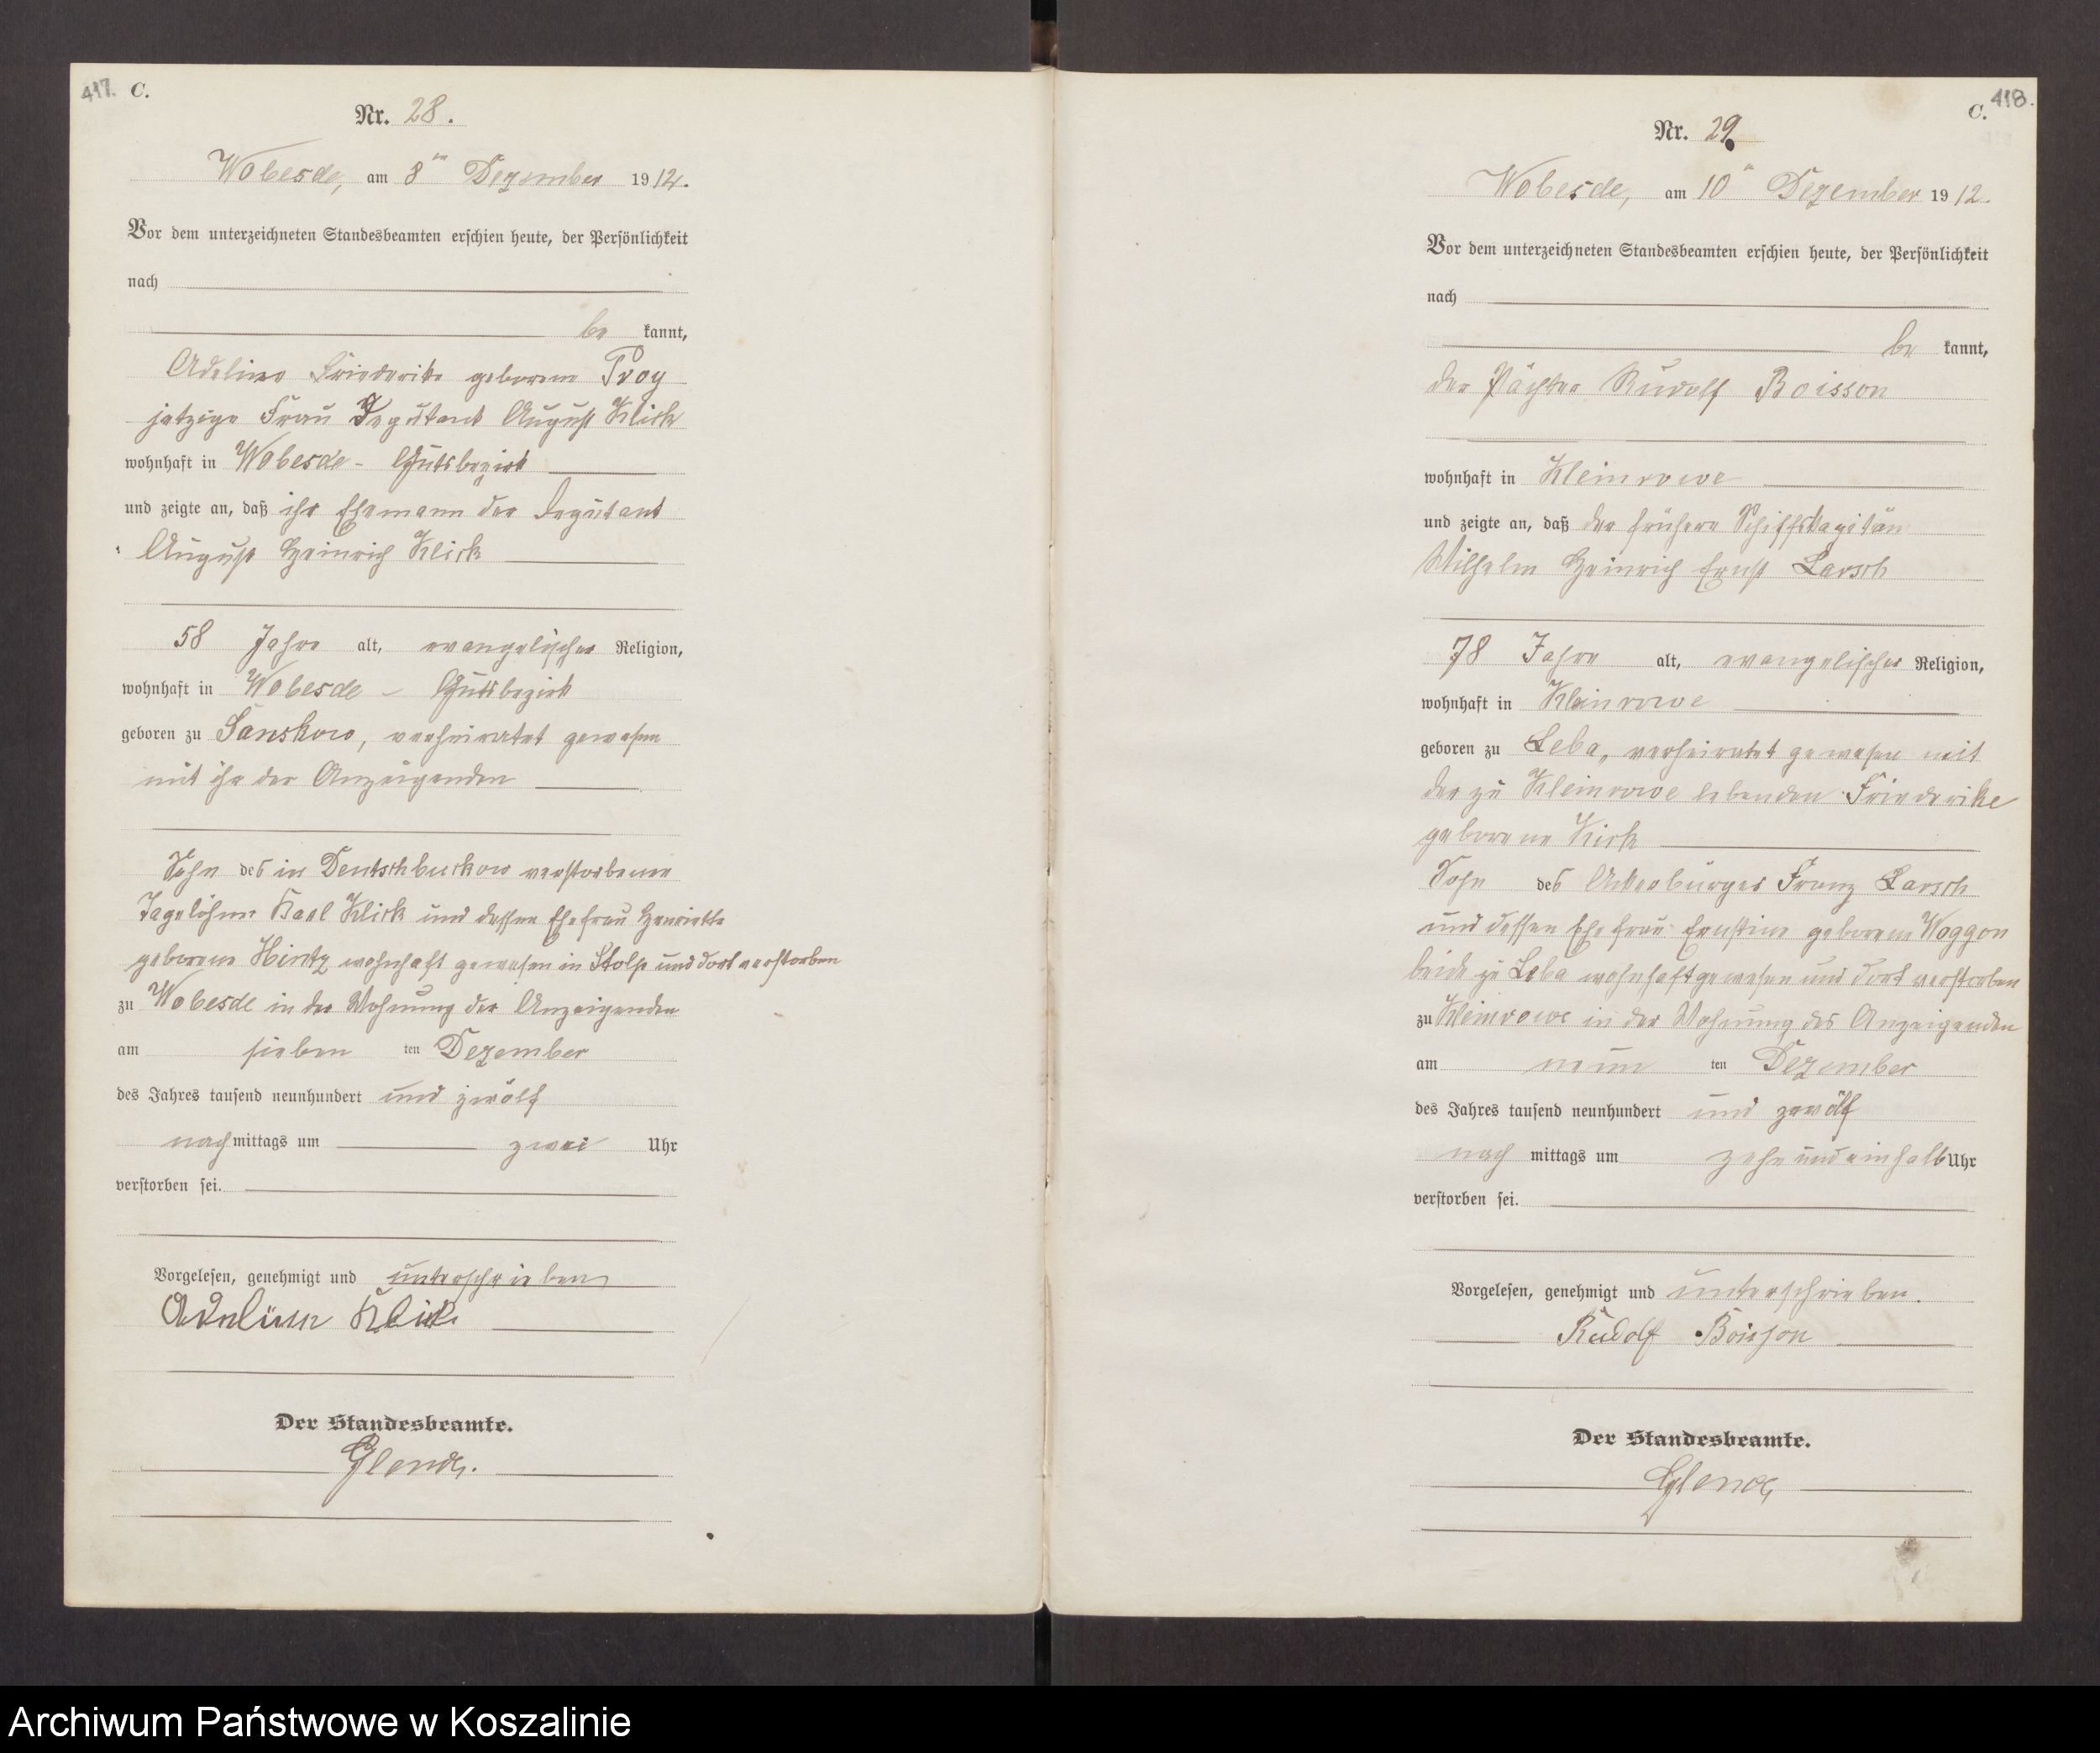 417. C.
Nr. 28.
Wobesde, am 8ten Dezember 1912.
Vor dem unterzeichneten Standesbeamten erschien heute, der Persönlichkeit
nach
be kannt,
Adeline Friederike geborene Proy
jetzige Frau Deputant August Klick
wohnhaft in Wobesde - Gutsbezirk
und zeigte an, daß ihr Ehemann der Deputant
August Heinrich Klick
58 Jahre alt, evangelischer Religion,
wohnhaft in Wobesde - Gutsbezirk
geboren zu Sanskow, verheiratet gewesen
mit ihr der Anzeigenden
Sohn des in Deutschbuckow verstorbenen
Tagelöhner Karl Klick und dessen Ehefrau Henriette
geborene Hintz wohnhaft gewesen in Stolp und dort verstorben
zu Wobesde in der Wohnung der Anzeigenden
am sieben ten Dezember
des Jahres tausend neunhundert und zwölf
nach mittags um zwei Uhr
verstorben sei.
Vorgelesen, genehmigt und unterschrieben
Adeline Klick
Der Standesbeamte.
C. 418.
Nr. 29
Wobesde, am 10ten Dezember 1912.
Vor dem unterzeichneten Standesbeamten erschien heute, der Persönlichkeit
nach
be kannt,
der Pächter Rudolf Boisson
wohnhaft in Kleinrowe
und zeigte an, daß der frühere Schiffskapitän
Wilhelm Heinrich Ernst Larsch
78 Jahre alt, evangelischer Religion,
wohnhaft in Kleinrowe
geboren zu Leba, verheiratet gewesen mit
der zu Kleinrowe lebenden Friederike
geborene Kick
Sohn des Ackerbürger Franz Larsch
und dessen Ehefrau Ernstine geborene Woggon
beide zu Leba wohnhaft gewesen und dort verstorben
zu Kleinrowe in der Wohnung des Anzeigenden
am neun ten Dezember
des Jahres tausend neunhundert und zwölf
nach mittags um zehn und ein halb Uhr
verstorben sei.
Vorgelesen, genehmigt und unterschrieben.
Rudolf Boisson
Der Standesbeamte.
Archiwum Państwowe w Koszalinie